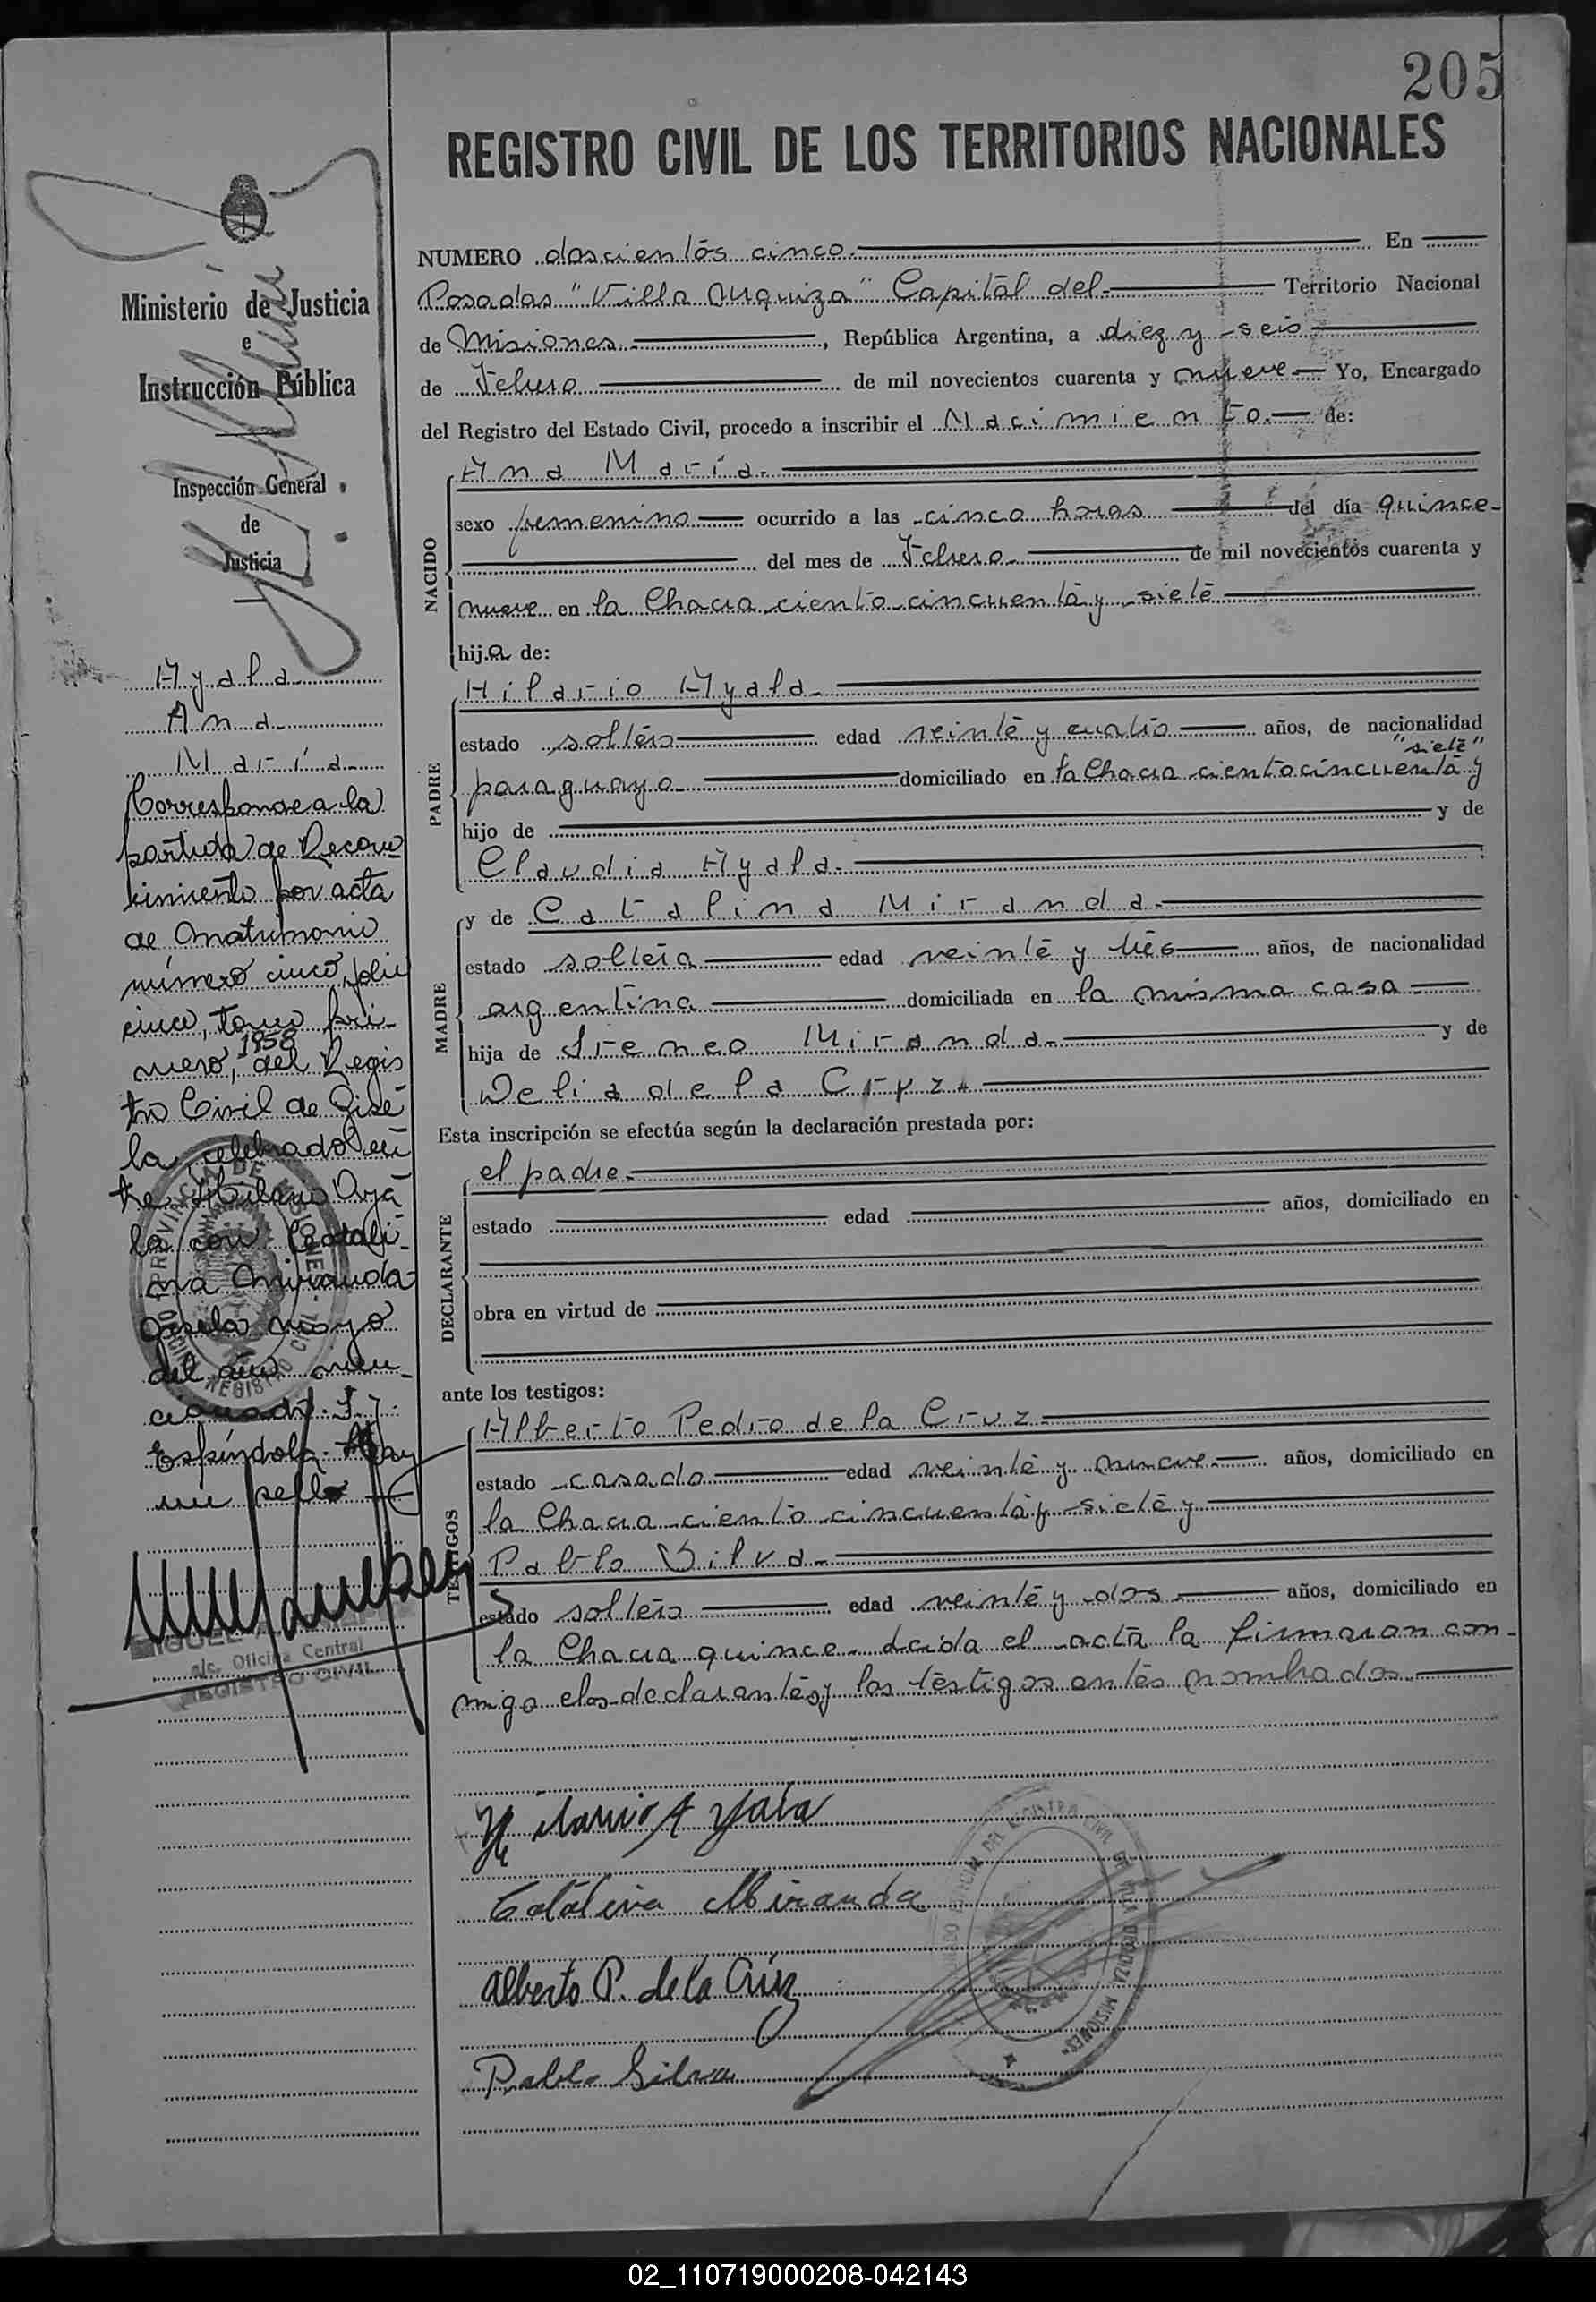 205
REGISTRO CIVIL DE LOS TERRITORIOS NACIONALES
NUMERO doscientos cinco. En
Posadas "Villa Urquiza" Capital del Territorio Nacional
de Misiones, República Argentina, a diez y seis
de Febrero de mil novecientos cuarenta y nueve Yo, Encargado
del Registro del Estado Civil, procedo a inscribir el Nacimiento. de:
NACIDO
Ana María.
sexo femenino ocurrido a las cinco horas del día quince
del mes de Febrero de mil novecientos cuarenta y
nueve en la Chacra ciento cincuenta y siete
hija de:
PADRE
Hilario Ayala
estado soltero edad veinte y cuatro años, de nacionalidad
"siete"
paraguayo domiciliado en la Chacra ciento cincuenta y
hijo de y de
Claudia Ayala.
MADRE
y de Catalina Miranda.
estado soltera edad veinte y tres años, de nacionalidad
argentina domiciliada en la misma casa
hija de Ireneo Miranda y de
Delia de la Cruz.
Esta inscripción se efectúa según la declaración prestada por:
DECLARANTE
el padre.
estado edad años, domiciliado en
obra en virtud de
ante los testigos:
TESTIGOS
Alberto Pedro de la Cruz
estado casado edad veinte y nueve años, domiciliado en
la Chacra ciento cincuenta y siete y
Pablo Silva
estado soltero edad veinte y dos años, domiciliado en
la Chacra quince. Leida el acta la firmaran con-
migo los declarantes y los testigos antes nombrados.
Hilario Ayala
Catalina Miranda
Alberto P. de la Cruz
Pablo Silva
Ministerio de Justicia
e
Instrucción Pública
Inspección General
de
Justicia
Ayala
Ana
María
Corresponde a la
partida de Recono
cimiento por acta
de Matrimonio
número cinco, folio
cinco, tomo pri-
1958
mero, del Regis
tro Civil de Gise
la, celebrado en
tre Hilario Aya
la con Catali-
na Miranda
Gisela mayo
del año men
cionado.
Espíndola. Hay
un sello
PROVINCIA DE MISIONES
REGISTRO CIVIL
MIGUEL
a/c. Oficina Central
REGISTRO CIVIL
REGISTRO CIVIL DE VILLA URQUIZA MISIONES
02_110719000208-042143